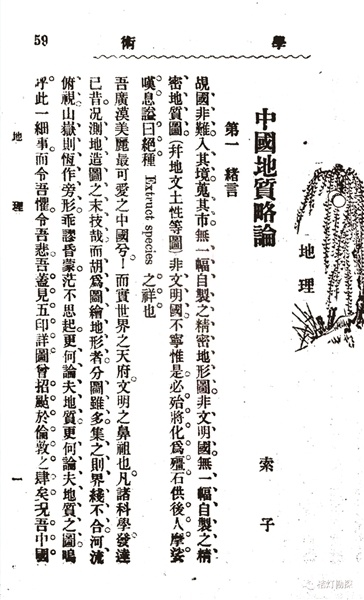 59
學術
地理
中國地質略論
索子
第一 緒言
覘國非難入其境蒐其市無一幅自製之精密地形圖非文明國無一幅自製之精
密地質圖(幷地文土性等圖)非文明國不寧惟是必殆將化爲殭石供後人摩挲
嘆息謚曰絕種 Extruct species 之祥也
吾廣漠美麗最可愛之中國兮!而實世界之天府文明之鼻祖也凡諸科學發達
已昔况測地造圖之末技哉而胡爲圖繪地形者分圖雖多集之則界綫不合河流
俯視山嶽則恆作旁形乖謬昏蒙茫不思起更何論夫地質更何論夫地質之圖嗚
呼此一細事而令吾懼令吾悲吾蓋見五印詳圖曾招颭於倫敦之肆矣况吾中國
地理
一